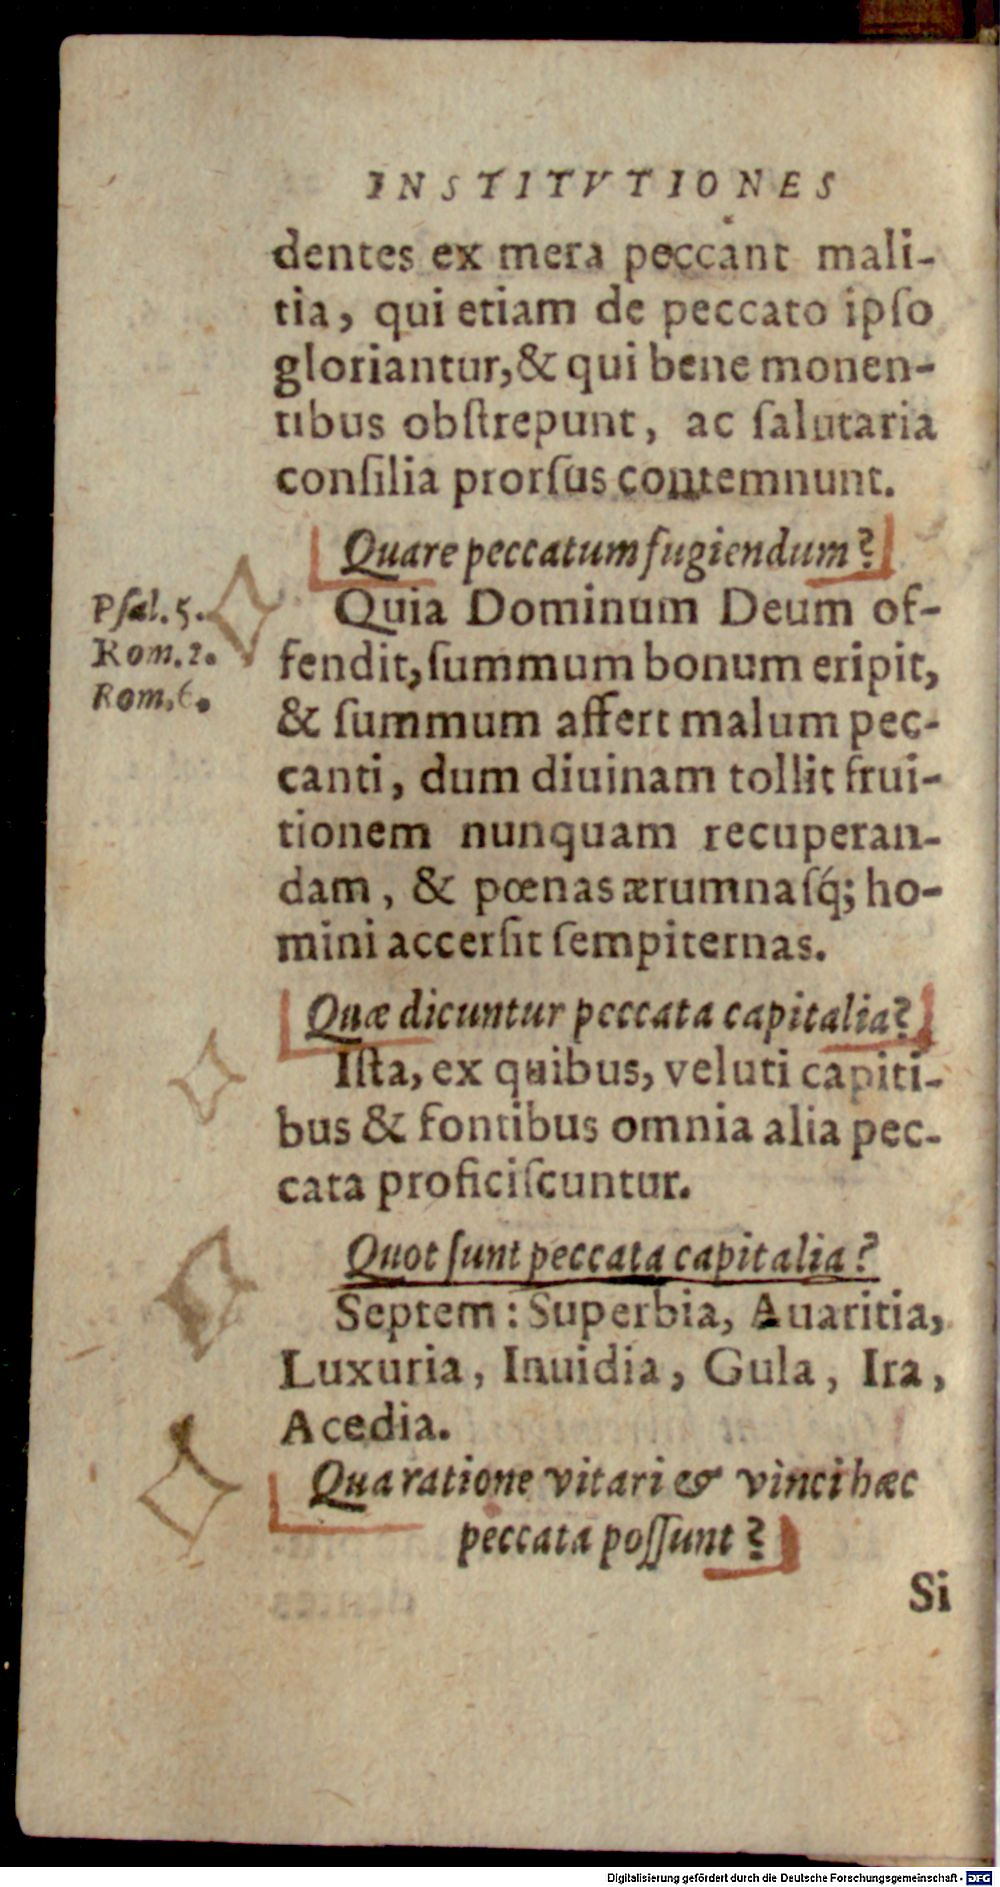 INSTITVTIONES
dentes ex mera peccant mali-
tia, qui etiam de peccato ipſo
gloriantur, & qui bene monen-
tibus obſtrepunt, ac ſalutaria
conſilia prorſus contemnunt.
Quare peccatum fugiendum?
Pſal. 5.
Rom. 2.
Rom. 6.
Quia Dominum Deum of-
fendit, ſummum bonum eripit,
& ſummum affert malum pec-
canti, dum diuinam tollit frui-
tionem nunquam recuperan-
dam, & pœnas ærumnaſq́; ho-
mini accerſit ſempiternas.
Quæ dicuntur peccata capitalia?
Iſta, ex quibus, veluti capiti-
bus & fontibus omnia alia pec-
cata proficiſcuntur.
Quot ſunt peccata capitalia?
Septem: Superbia, Auaritia,
Luxuria, Inuidia, Gula, Ira,
Acedia.
Qua ratione vitari & vinci hæc
peccata poſſunt?
Si
Digitalisierung gefördert durch die Deutsche Forschungsgemeinschaft - DFG